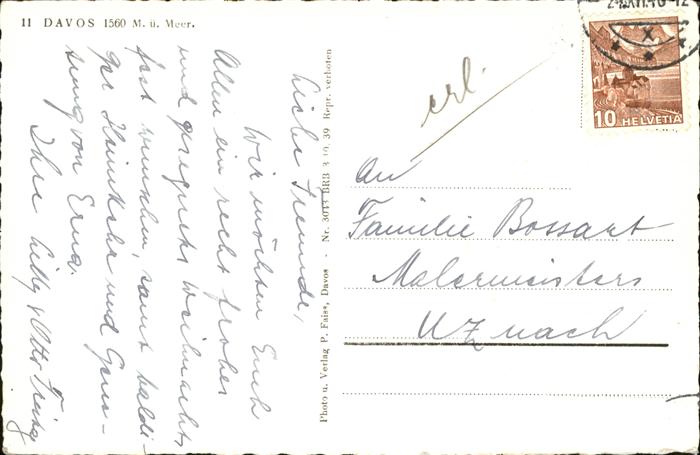 11 DAVOS 1560 M. ü. Meer.
Liebe Freunde,
Wir möchten Euch
Allen ein recht frohes
und gesegnetes Weihnachts
fest wünschen, samt baldi-
ger Heimkehr und Gene-
sung von Erna.
Ihre Lilly & Otto
Photo u. Verlag P. Faiss, Davos - Nr. 3013 BRB 3. 10. 39 Repr. verboten
erl.
10 HELVETIA
An
Familie Bossart
Malermeisters
Uznach